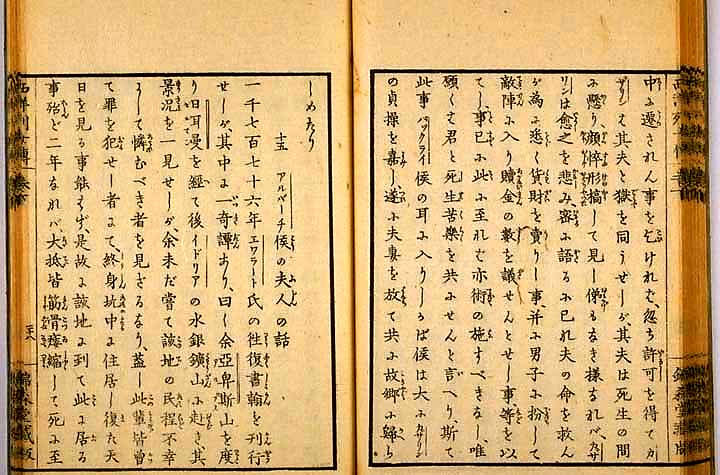 中に遷されん事を乞けれむ、忽ち許可を得てカ
ザリンは其夫と獄を同うせしが其夫は死生の間
に懸り、顔悴形槁して見し俤もなき様なれバ、カザ
リンは愈之を悲み、密に語るに已れ夫の命を救ん
が為に悉く貨財を賣りし事并に男子に扮して
敵陣に入り贖金の數を議せんとせし事等を以
てし、事已に此に至れむ亦術の施すべきなし、唯
願くハ君と死生苦樂を共にせんと言へり、斯て
此事バッフライ侯の耳に入りしかば侯は大にカザリン
の貞操を嘉し、遂に夫妻を放て共に故郷に歸ら
しめたり
十五 アルベーチ侯の夫人の話
一千七百七十六年エワラード氏の徃復書翰を刊行
せしが、其中に一奇譚あり、曰く余亞卑斯山を度
り日耳曼を經て後イドリアの水銀鑛山に赴き其
景况を一見せしが、余未だ嘗て該地の民程不幸
にして憐むべき者を見ざるなり、蓋し此輩皆曽
て罪を犯せし者にて、終身坑中に住居し復た天
日を見る事能はず、是故に該地に到て此に居る
事殆ど二年なれバ、大抵皆筋骨攣縮して死に至